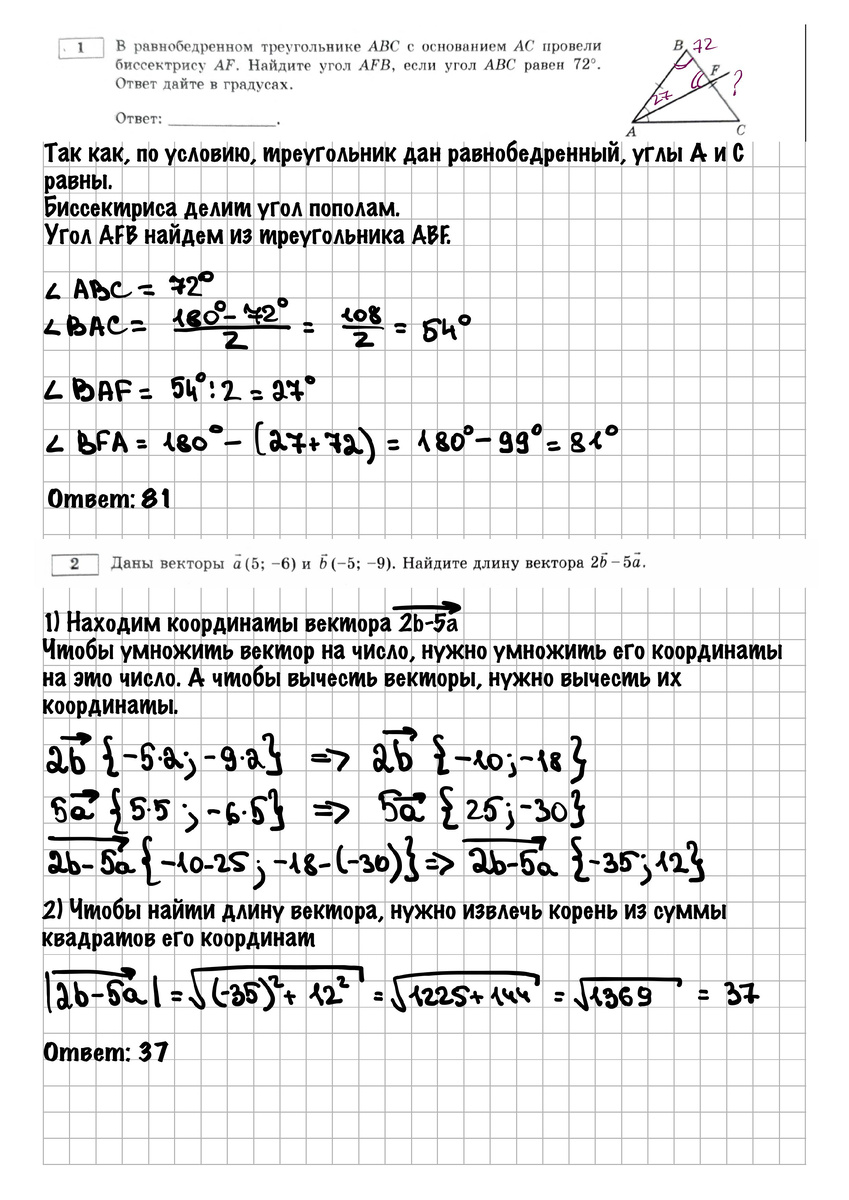 1
В равнобедренном треугольнике ABC с основанием AC провели
биссектрису AF. Найдите угол AFB, если угол ABC равен 72°.
Ответ дайте в градусах.
Ответ: ____________.
B 72
F
?
27
A
C
Так как, по условию, треугольник дан равнобедренный, углы А и С
равны.
Биссектриса делит угол пополам.
Угол AFB найдем из треугольника ABF.
∠ ABC = 72°
∠ BAC = (180° - 72°)/2 = 108/2 = 54°
∠ BAF = 54° : 2 = 27°
∠ BFA = 180° - (27+72) = 180° - 99° = 81°
Ответ: 81
2
Даны векторы a⃗ (5; −6) и b⃗ (−5; −9). Найдите длину вектора 2b⃗ − 5a⃗.
1) Находим координаты вектора 2b-5a
Чтобы умножить вектор на число, нужно умножить его координаты
на это число. А чтобы вычесть векторы, нужно вычесть их
координаты.
2b {-5·2; -9·2} => 2b {-10; -18}
5a {5·5; -6·5} => 5a {25; -30}
2b-5a {-10-25; -18-(-30)} => 2b-5a {-35; 12}
2) Чтобы найти длину вектора, нужно извлечь корень из суммы
квадратов его координат
|2b-5a| = √((-35)² + 12²) = √(1225+144) = √1369 = 37
Ответ: 37